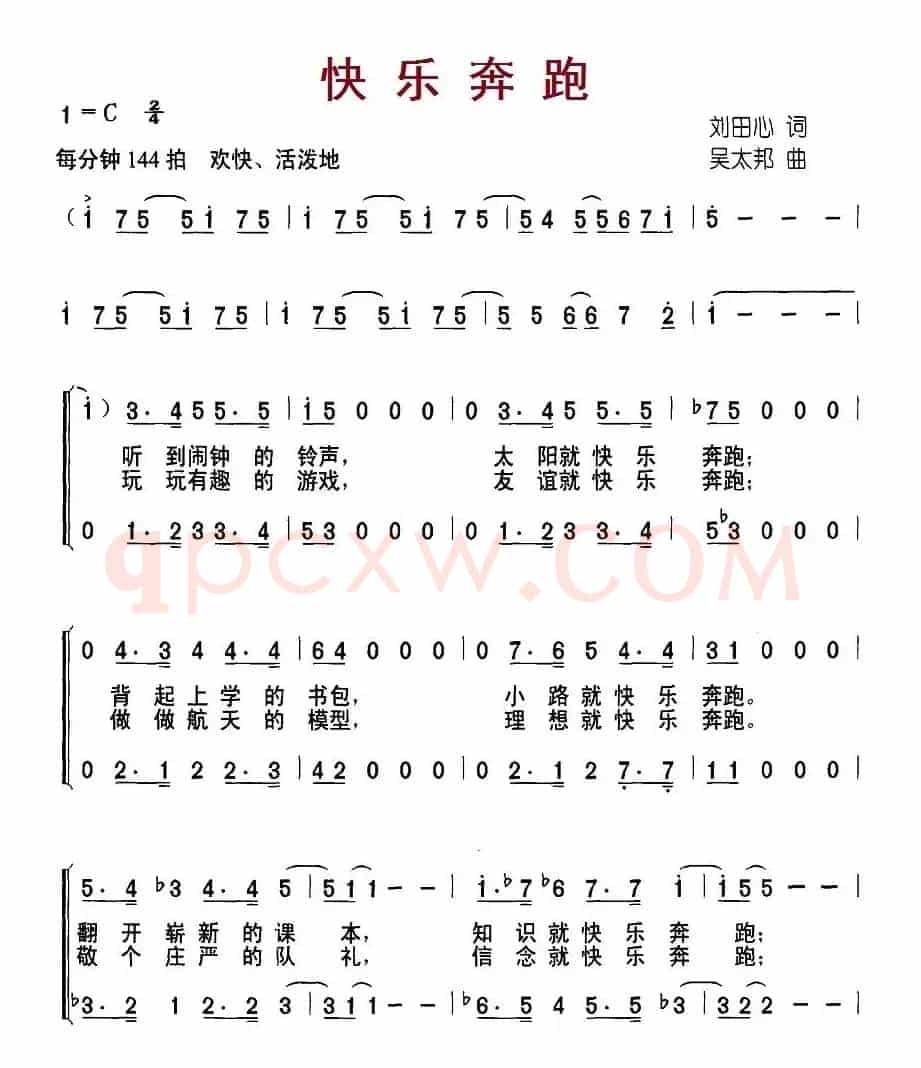 快乐奔跑
1=C 2/4
刘田心 词
每分钟144拍 欢快、活泼地
吴太邦 曲
(i 75 5i 75 | i 75 5i 75 | 54 5567i | 5 - - - |
i 75 5i 75 | i 75 5i 75 | 5 5 66 7 2 | i - - - |
i) 3·455·5 | i5 0 0 0 | 0 3·45 5·5 | ♭75 0 0 0 |
听 到闹钟 的 铃声, 太 阳就 快 乐 奔跑;
玩 玩有趣 的 游戏, 友 谊就 快 乐 奔跑;
0 1·233·4 | 53 0 0 0 | 0 1·23 3·4 | 5♭3 0 0 0 |
qpcxw.COM
0 4·3 4 4·4 | 64 0 0 0 | 0 7·6 5 4·4 | 31 0 0 0 |
背 起 上 学 的 书包, 小 路 就 快 乐 奔跑。
做 做 航 天 的 模型, 理 想 就 快 乐 奔跑。
0 2·1 2 2·3 | 42 0 0 0 | 0 2·1 2 7·7 | 11 0 0 0 |
5·4 ♭3 4·4 5 | 511 - - | i·♭7 ♭6 7·7 i | i55 - - |
翻 开 崭 新 的 课 本, 知 识 就 快 乐 奔 跑;
敬 个 庄 严 的 队 礼, 信 念 就 快 乐 奔 跑;
♭3·2 1 2·2 3 | 311 - - | ♭6·5 4 5·5 ♭3 | 322 - - |